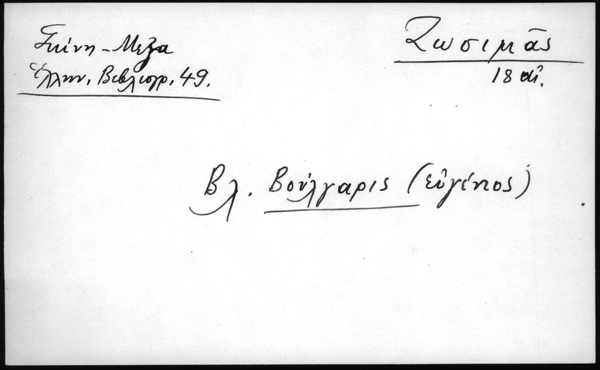 Γκίνη-Μέξα
Ἑλλην. Βιβλιογρ. 49.
Ζωσιμᾶς
18 αἰ.
Βλ. Βούλγαρις (εὐγένιος)